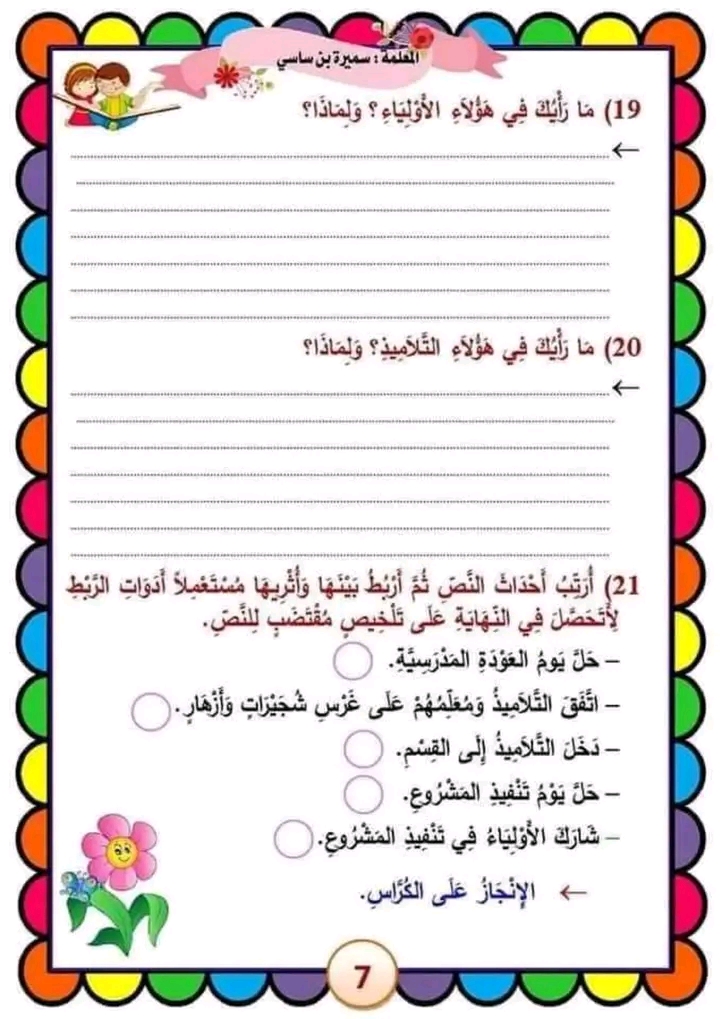 المعلمة : سميرة بن ساسي
19) مَا رَأْيُكَ فِي هَؤُلاَءِ الأَوْلِيَاءِ؟ وَلِمَاذَا؟
20) مَا رَأْيُكَ فِي هَؤُلاَءِ التَّلاَمِيذِ؟ وَلِمَاذَا؟
21) أُرَتِّبُ أَحْدَاثَ النَّصِّ ثُمَّ أَرْبُطُ بَيْنَهَا وَأُثْرِيهَا مُسْتَعْمِلاً أَدَوَاتِ الرَّبْطِ
لِأَتَحَصَّلَ فِي النِّهَايَةِ عَلَى تَلْخِيصٍ مُقْتَضَبٍ لِلنَّصِّ.
– حَلَّ يَومُ العَوْدَةِ المَدْرَسِيَّةِ.
– اتَّفَقَ التَّلاَمِيذُ وَمُعَلِّمُهُمْ عَلَى غَرْسِ شُجَيْرَاتٍ وَأَزْهَارٍ.
– دَخَلَ التَّلاَمِيذُ إِلَى القِسْمِ.
– حَلَّ يَوْمُ تَنْفِيذِ المَشْرُوعِ.
– شَارَكَ الأَوْلِيَاءُ فِي تَنْفِيذِ المَشْرُوعِ.
← الإِنْجَازُ عَلَى الكُرَّاسِ.
7